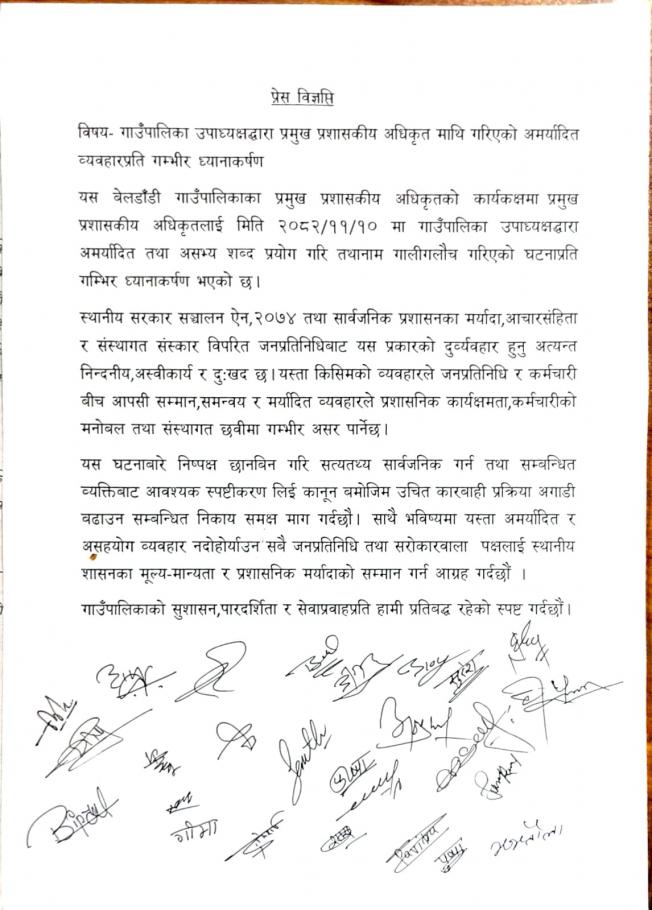 प्रेस विज्ञप्ति
विषय- गाउँपालिका उपाध्यक्षद्धारा प्रमुख प्रशासकीय अधिकृत माथि गरिएको अमर्यादित
व्यवहारप्रति गम्भीर ध्यानाकर्षण
यस बेलडाँडी गाउँपालिकाका प्रमुख प्रशासकीय अधिकृतको कार्यकक्षमा प्रमुख
प्रशासकीय अधिकृतलाई मिति २०८२/११/१० मा गाउँपालिका उपाध्यक्षद्धारा
अमर्यादित तथा असभ्य शब्द प्रयोग गरि तथानाम गालीगलौच गरिएको घटनाप्रति
गम्भिर ध्यानाकर्षण भएको छ।
स्थानीय सरकार सञ्चालन ऐन,२०७४ तथा सार्वजनिक प्रशासनका मर्यादा,आचारसंहिता
र संस्थागत संस्कार विपरित जनप्रतिनिधिबाट यस प्रकारको दुर्व्यवहार हुनु अत्यन्त
निन्दनीय,अस्वीकार्य र दु:खद छ।यस्ता किसिमको व्यवहारले जनप्रतिनिधि र कर्मचारी
बीच आपसी सम्मान,समन्वय र मर्यादित व्यवहारले प्रशासनिक कार्यक्षमता,कर्मचारीको
मनोबल तथा संस्थागत छवीमा गम्भीर असर पार्नेछ।
यस घटनाबारे निष्पक्ष छानबिन गरि सत्यतथ्य सार्वजनिक गर्न तथा सम्बन्धित
व्यक्तिबाट आवश्यक स्पष्टीकरण लिई कानून बमोजिम उचित कारबाही प्रक्रिया अगाडी
बढाउन सम्बन्धित निकाय समक्ष माग गर्दछौ। साथै भविष्यमा यस्ता अमर्यादित र
असहयोग व्यवहार नदोहोर्याउन सबै जनप्रतिनिधि तथा सरोकारवाला पक्षलाई स्थानीय
शासनका मूल्य-मान्यता र प्रशासनिक मर्यादाको सम्मान गर्न आग्रह गर्दछौं ।
गाउँपालिकाको सुशासन,पारदर्शिता र सेवाप्रवाहप्रति हामी प्रतिबद्ध रहेको स्पष्ट गर्दछौं।
गीमा